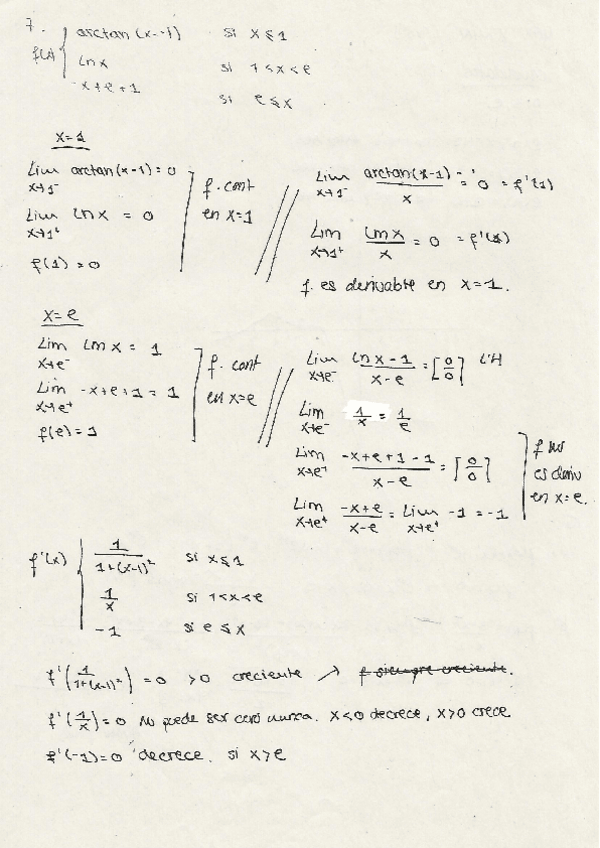 7.
f(x) { arctan(x-1) si x ≤ 1
ln x si 1 < x < e
-x+e+1 si e ≤ x
x=1
Lim x→1⁻ arctan(x-1) = 0
Lim x→1⁺ ln x = 0
f(1) = 0
f. cont
en x=1
Lim x→1⁻ arctan(x-1)/x = 0 = f'(1)
Lim x→1⁺ ln x/x = 0 = f'(1)
f. es derivable en x=1.
x=e
Lim x→e⁻ ln x = 1
Lim x→e⁺ -x+e+1 = 1
f(e) = 1
f. cont
en x=e
Lim x→e⁻ ln x - 1/x-e = [0/0] L'H
Lim x→e⁻ 1/x = 1/e
Lim x→e⁺ -x+e+1-1/x-e = [0/0]
Lim x→e⁺ -x+e/x-e = Lim x→e⁺ -1 = -1
es deriv
en x=e.
f'(x) { 1/1+(x-1)² si x ≤ 1
1/x si 1<x<e
-1 si e ≤ x
f'(1/1+(x-1)²) = 0 >0 creciente → f siempre creciente.
f'(1/x) = 0 No puede ser cero nunca. x<0 decrece, x>0 crece
f'(-1) = 0 decrece. si x>e